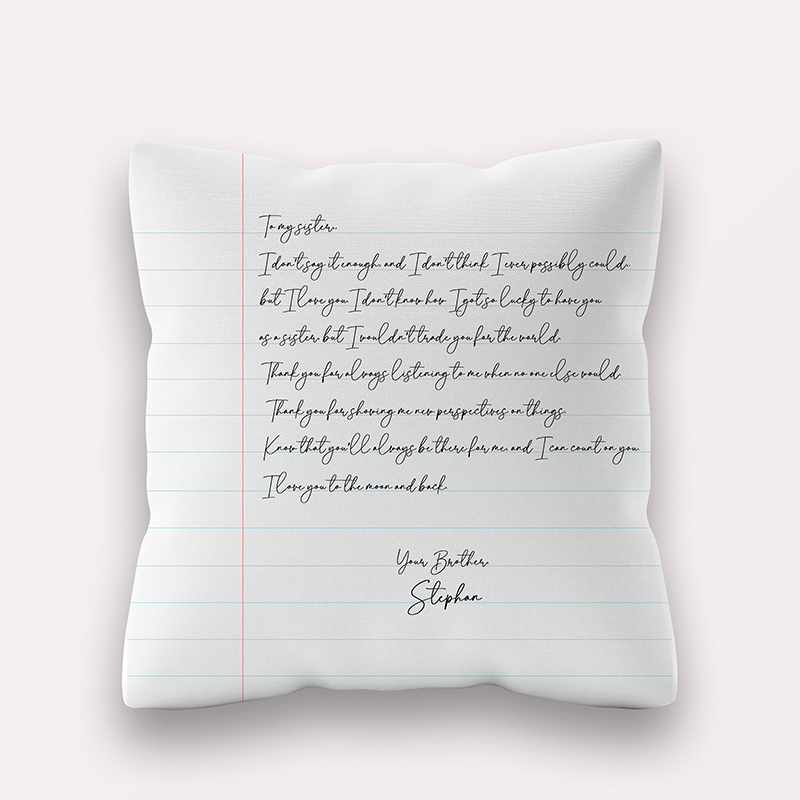 To my sister,
I don't say it enough, and I don't think I ever possibly could,
but I love you. I don't know how I got so lucky to have you
as a sister, but I wouldn't trade you for the world.
Thank you for always listening to me when no one else would.
Thank you for showing me new perspectives on things.
Know that you'll always be there for me, and I can count on you.
I love you to the moon and back.
Your Brother,
Stephan